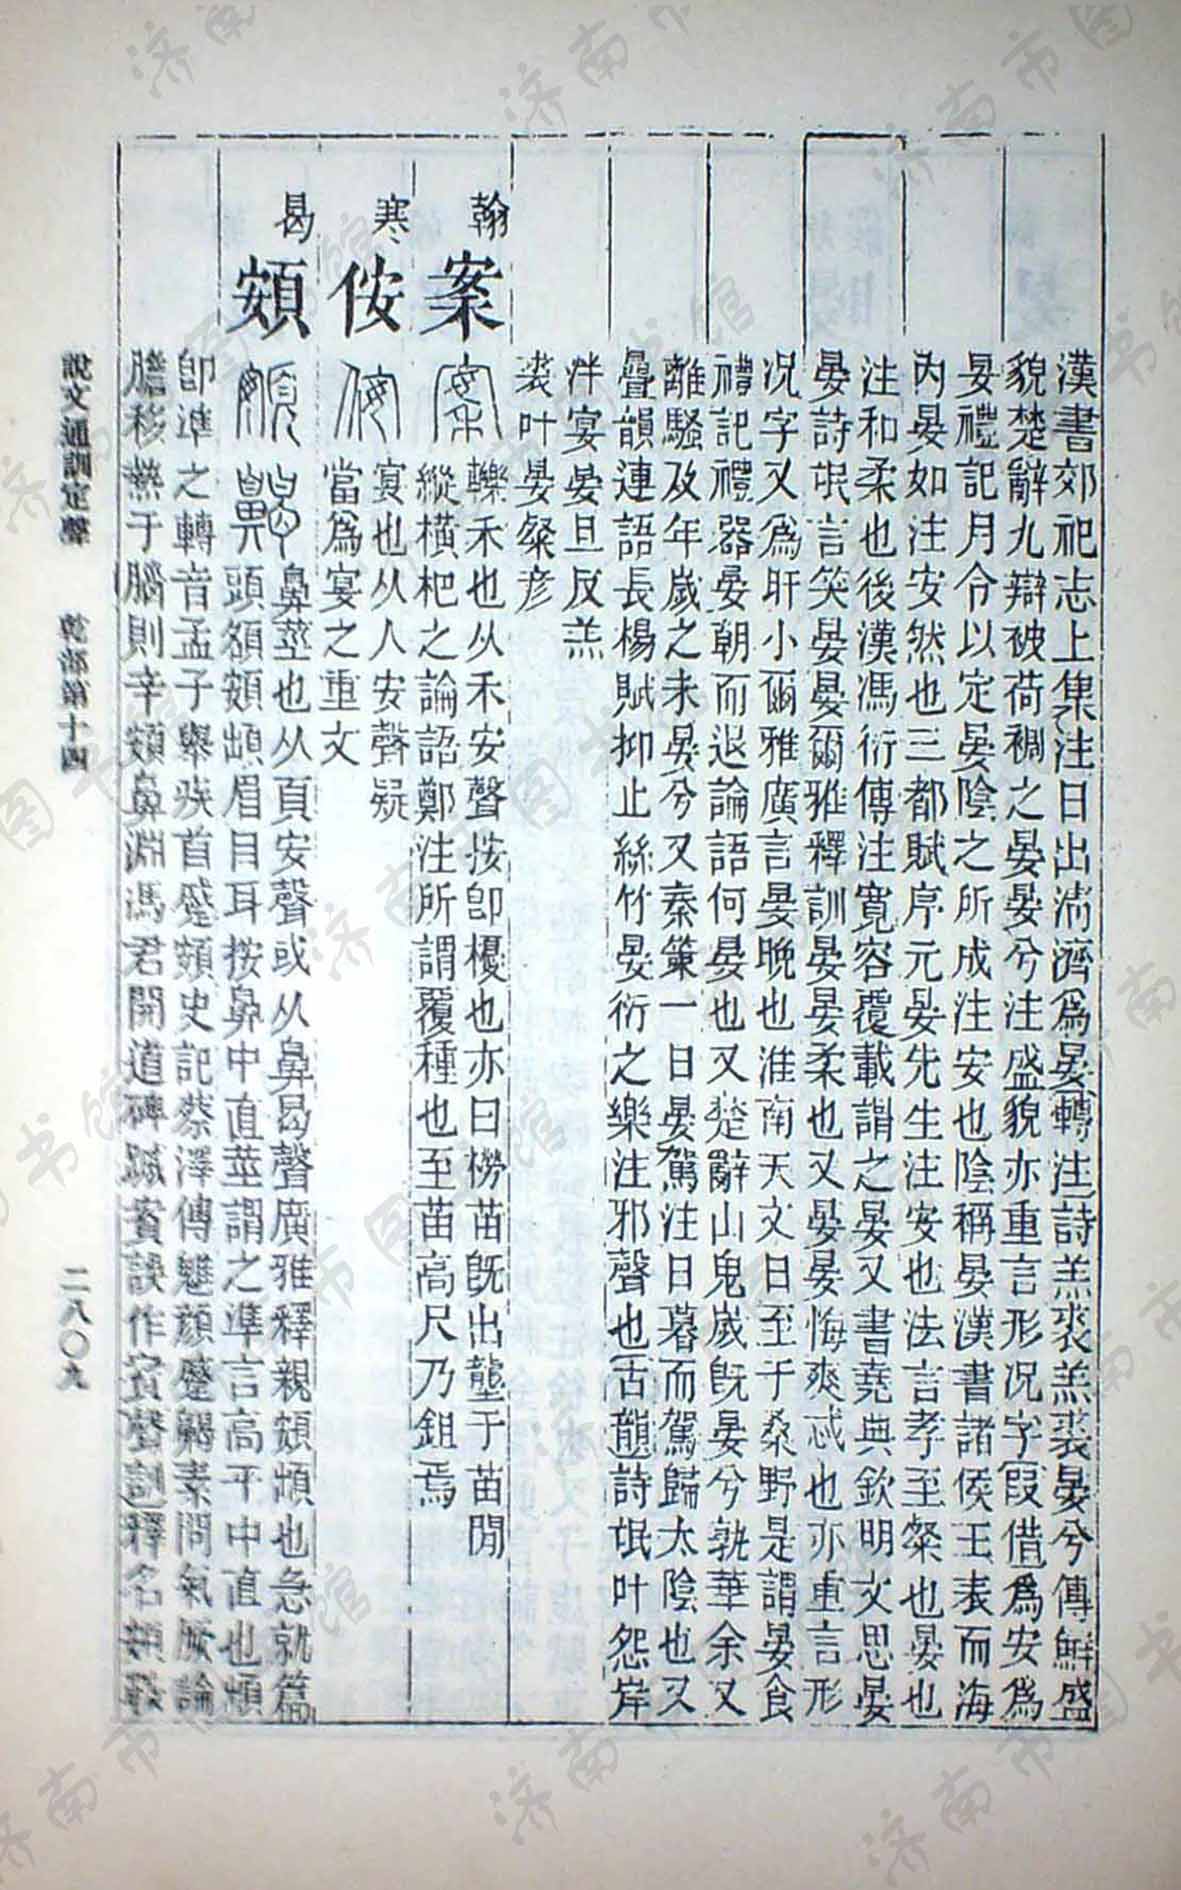 漢書郊祀志上集注日出淸濟爲晏轉注詩羔裘羔裘晏兮傳鮮盛
貌楚辭九辯被荷裯之晏晏兮注盛貌亦重言形况字叚借爲安爲
晏禮記月令以定晏陰之所成注安也陰稱晏漢書諸侯王表而海
內晏如注安然也三都賦序元晏先生注安也法言孝至粲也晏也
注和柔也後漢馮衍傳注寬容覆載謂之晏又書堯典欽明文思晏
晏詩氓言笑晏晏爾雅釋訓晏晏柔也又晏晏悔爽忒也亦重言形
况字又爲旰小爾雅廣言晏晚也淮南天文日至于桑野是謂晏食
禮記禮器晏朝而退論語何晏也又楚辭山鬼歲旣晏兮孰華余又
離騷及年歲之未晏兮又秦策一日晏駕注日暮而駕歸太陰也又
疊韻連語長楊賦抑止絲竹晏衍之樂注邪聲也古韻詩氓叶怨岸
泮宴晏旦反羔
裘叶晏粲彦
翰
案
轢禾也从禾安聲按卽櫌也亦曰㯍苗旣出壟于苗閒
縱橫杷之論語鄭注所謂覆種也至苗高尺乃鉏焉
寒
侒
宴也从人安聲疑
當爲宴之重文
曷
頞
鼻莖也从頁安聲或从鼻曷聲廣雅釋親頞䪼也急就篇
頭頟頞䪼眉目耳按鼻中直莖謂之準言高平中直也䪼
卽準之轉音孟子舉疾首蹙頞史記蔡澤傳魋顏蹙齃素問氣厥論
膽移熱于腦則辛頞鼻淵馮君開道碑䫌賓訣作賓聲訓釋名頞
說文通訓定聲
乾部第十四
二八〇九